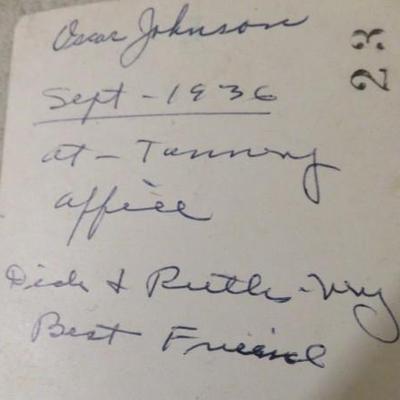 Oscar Johnson
23
Sept - 1936
at - Tannery
office
Dick & Ruth - my
Best Friend